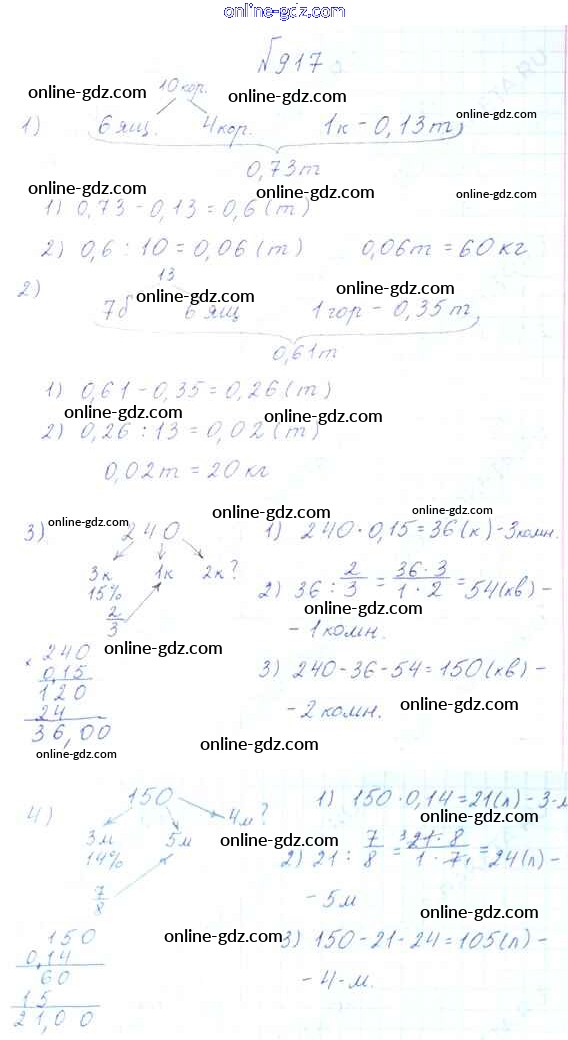 online-gdz.com
№917
10 кор.
online-gdz.com online-gdz.com
1) 6 ящ. 4 кор. 1к - 0,13т,
0,73т
online-gdz.com online-gdz.com online-gdz.com
1) 0,73 - 0,13 = 0,6 (т)
2) 0,6 : 10 = 0,06 (т) 0,06т = 60 кг
2) 13
online-gdz.com online-gdz.com
7б 6 ящ 1 гор - 0,35т,
0,61т
1) 0,61 - 0,35 = 0,26 (т)
online-gdz.com online-gdz.com
2) 0,26 : 13 = 0,02 (т)
0,02т = 20 кг
online-gdz.com online-gdz.com online-gdz.com
3) 240 1) 240 · 0,15 = 36 (к) - 3 комн.
3к 1к 2к?
15%
2/3
2) 36 : 2/3 = 36 · 3 / 1 · 2 = 54 (кв) -
online-gdz.com
- 1 комн.
online-gdz.com
240
0,15
120
24
36,00
3) 240 - 36 - 54 = 150 (кв) -
online-gdz.com
- 2 комн.
online-gdz.com online-gdz.com
4) 150 1) 150 · 0,14 = 21 (л) - 3-м
3м 5м 4м?
14%
7/8
online-gdz.com online-gdz.com
2) 21 : 7/8 = 21 · 8 / 1 · 7 = 24 (л) -
online-gdz.com
- 5м
online-gdz.com online-gdz.com
150
0,14
60
15
21,00
3) 150 - 21 - 24 = 105 (л) -
online-gdz.com
- 4-м.